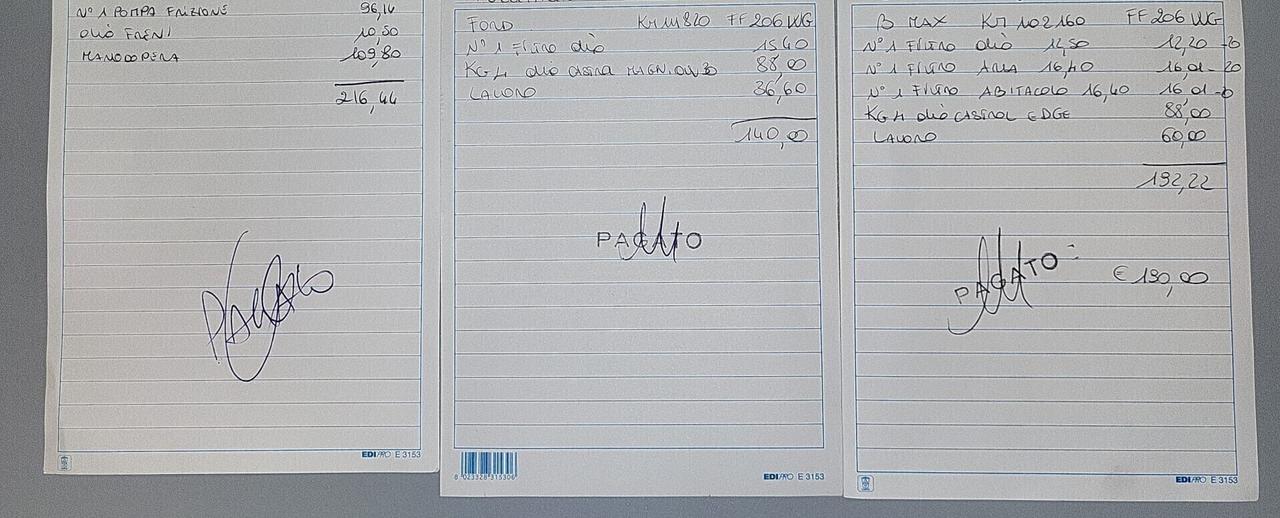 N° 1 POMPA FRIZIONE 96,14
OLIO FRENI 10,50
MANODOPERA 109,80
216,44
PAGATO
EDIPRO E 3153
FORD KM 111820 FF 206 WG
N° 1 FILTRO OLIO 15,40
KG 4 OLIO 88,00
LAVORO 36,60
140,00
PAGATO
8 023328 315306
EDIPRO E 3153
B MAX KM 102160 FF 206 WG
N° 1 FILTRO OLIO 12,50 12,20
N° 1 FILTRO ARIA 16,40 16,01 - 20
N° 1 FILTRO ABITACOLO 16,40 16,01
KG 4 OLIO CASTROL EDGE 88,00
LAVORO 60,00
192,22
PAGATO : € 190,00
EDIPRO E 3153